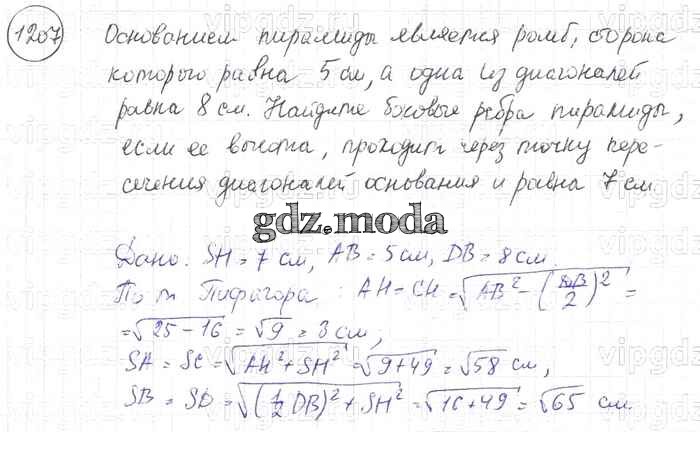 1207
Основанием пирамиды является ромб, сторона
которого равна 5 см, а одна из диагоналей
равна 8 см. Найдите боковые ребра пирамиды,
если ее высота, проходит через точку пере-
сечения диагоналей основания и равна 7 см.
gdz.moda
Дано: SH = 7 см, AB = 5 см, DB = 8 см.
По т. Пифагора: AH = CH = √(AB² − (DB/2)²) =
= √(25 − 16) = √9 = 3 см;
SA = SC = √(AH² + SH²) = √(9 + 49) = √58 см,
SB = SD = √((1/2 DB)² + SH²) = √(16 + 49) = √65 см.